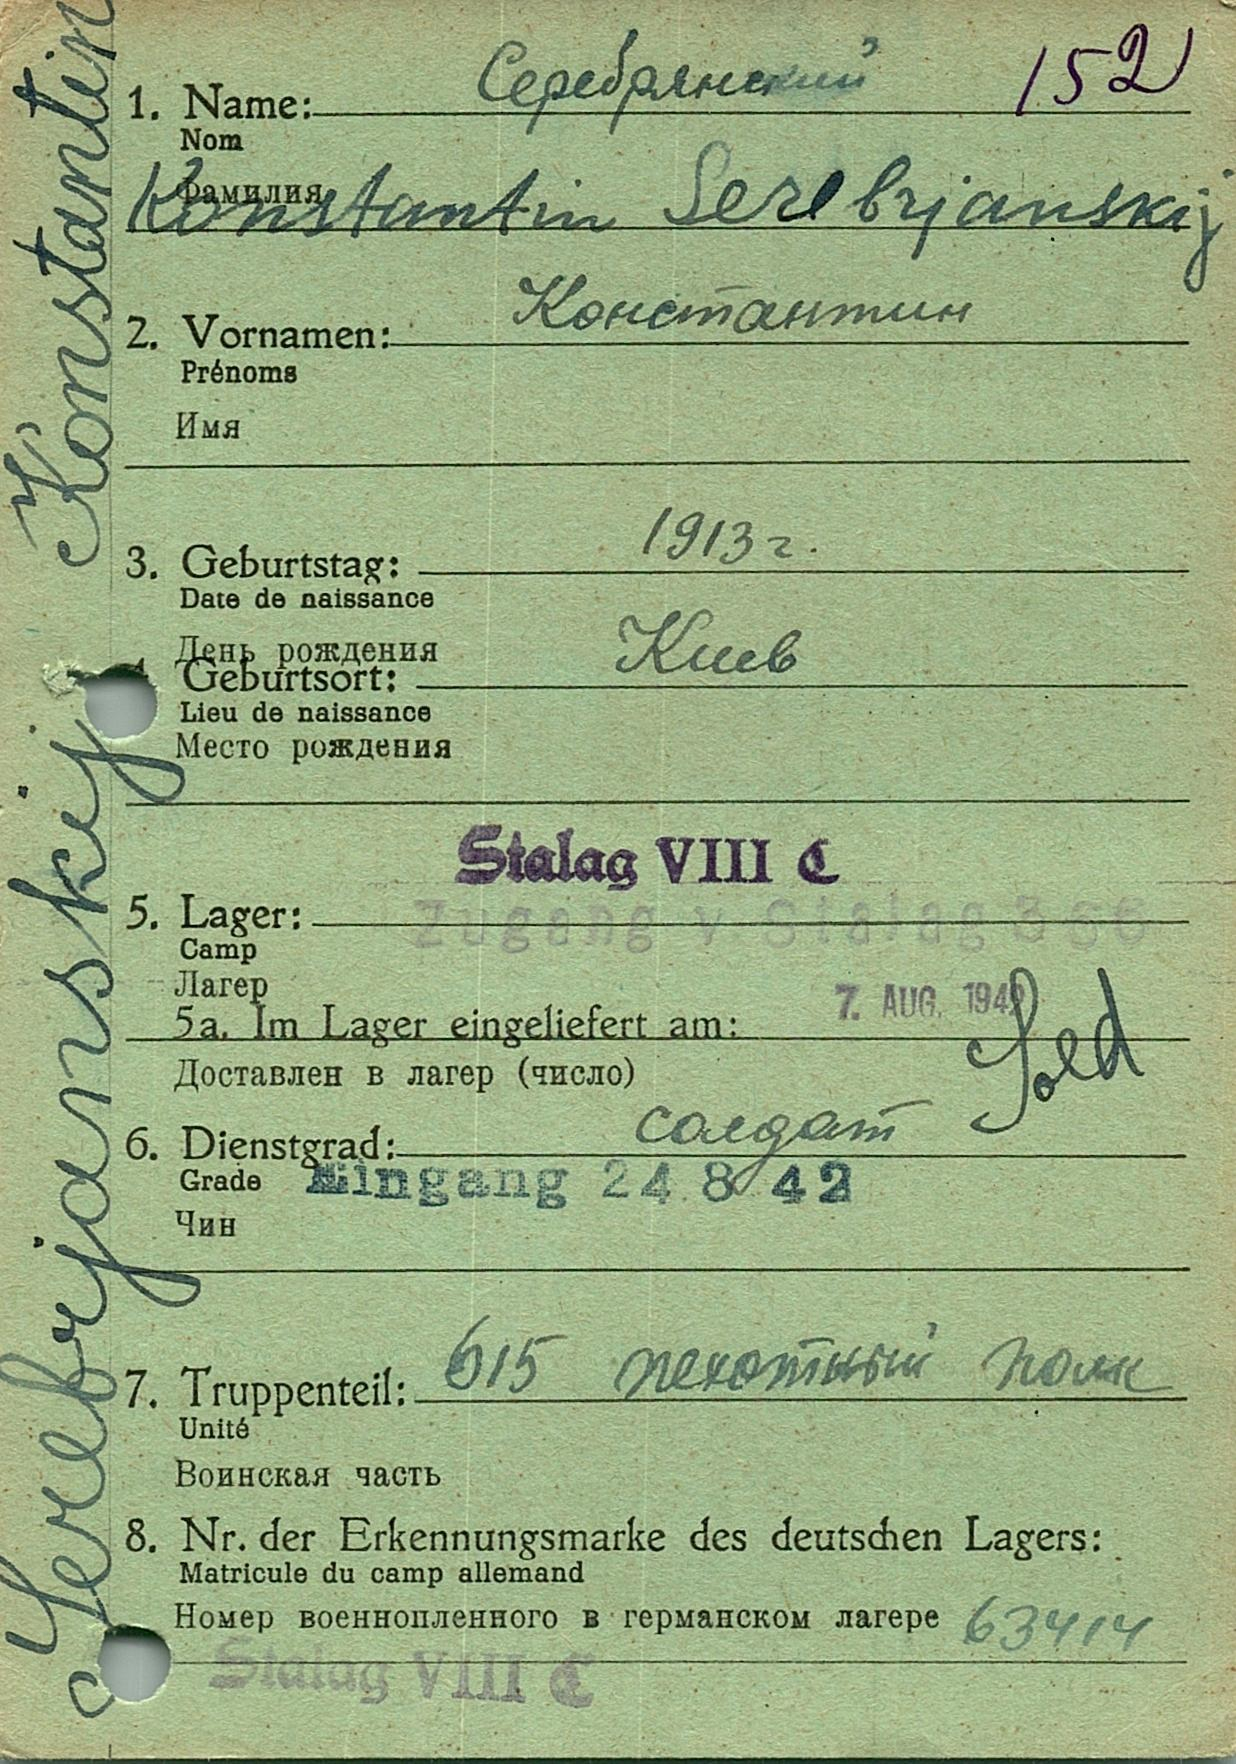 Серебрянский 152
1. Name:
Nom
Фамилия
Konstantin Serebrjanskij
Константин
2. Vornamen:
Prénoms
Имя
1913 г.
3. Geburtstag:
Date de naissance
День рождения
Киев
Geburtsort:
Lieu de naissance
Место рождения
Stalag VIII C
5. Lager:
Zugang v Stalag 366
Camp
Лагер
7. AUG. 1942
5a. Im Lager eingeliefert am:
Sold
Доставлен в лагер (число)
солдат
6. Dienstgrad:
Grade
Eingang 24 8 42
Чин
615 пехотный полк
7. Truppenteil:
Unité
Воинская часть
8. Nr. der Erkennungsmarke des deutschen Lagers:
Matricule du camp allemand
Номер военнопленного в германском лагере 63414
Stalag VIII C
Serebrjanskij Konstantin